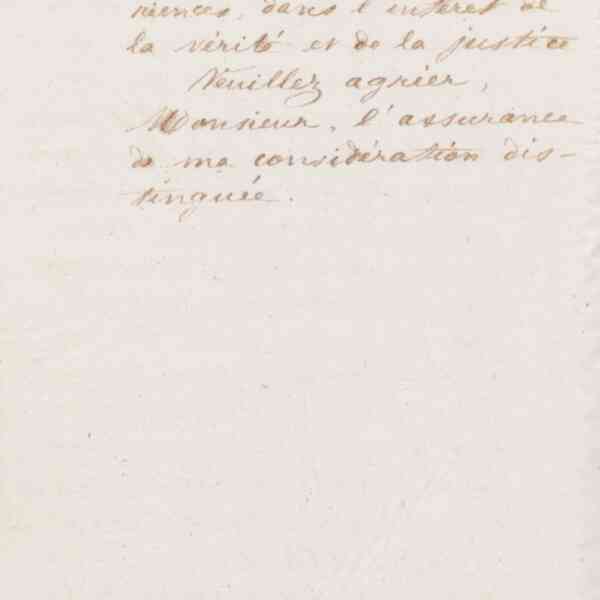 niences, dans l'intérêt de
la vérité et de la justice
Veuillez agréer,
Monsieur, l'assurance
de ma considération dis-
tinguée.